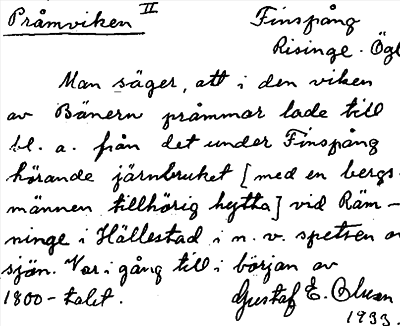 Pråmviken II
Finspång
Risinge. Ögl
Man säger, att i den viken
av Bänern pråmmar lade till
bl. a. från det under Finspång
hörande järnbruket [med en bergs-
männen tillhörig hytta] vid Räm-
ninge i Hällestad i n. v. spetsen av
sjön. Var i gång till i början av
1800-talet.
Gustaf E.
1933.